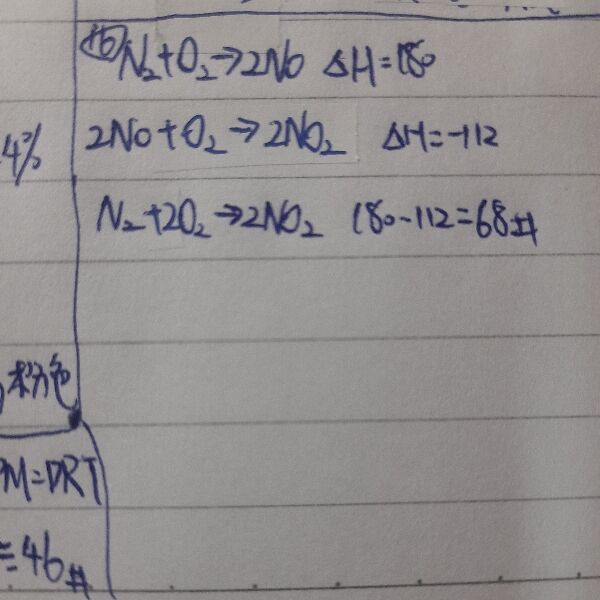 (16) N₂+O₂→2NO ΔH=180
2NO+O₂→2NO₂ ΔH=-112
N₂+2O₂→2NO₂ 180-112=68#
4%
粉色
PM=DRT
=46#